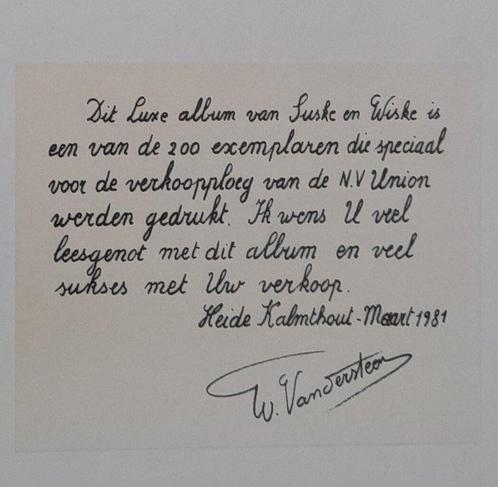 Dit Luxe album van Suske en Wiske is
een van de 200 exemplaren die speciaal
voor de verkoopploeg van de N.V Union
werden gedrukt. Ik wens U veel
leesgenot met dit album en veel
sukses met Uw verkoop.
Heide Kalmthout - Maart 1981
W. Vandersteen